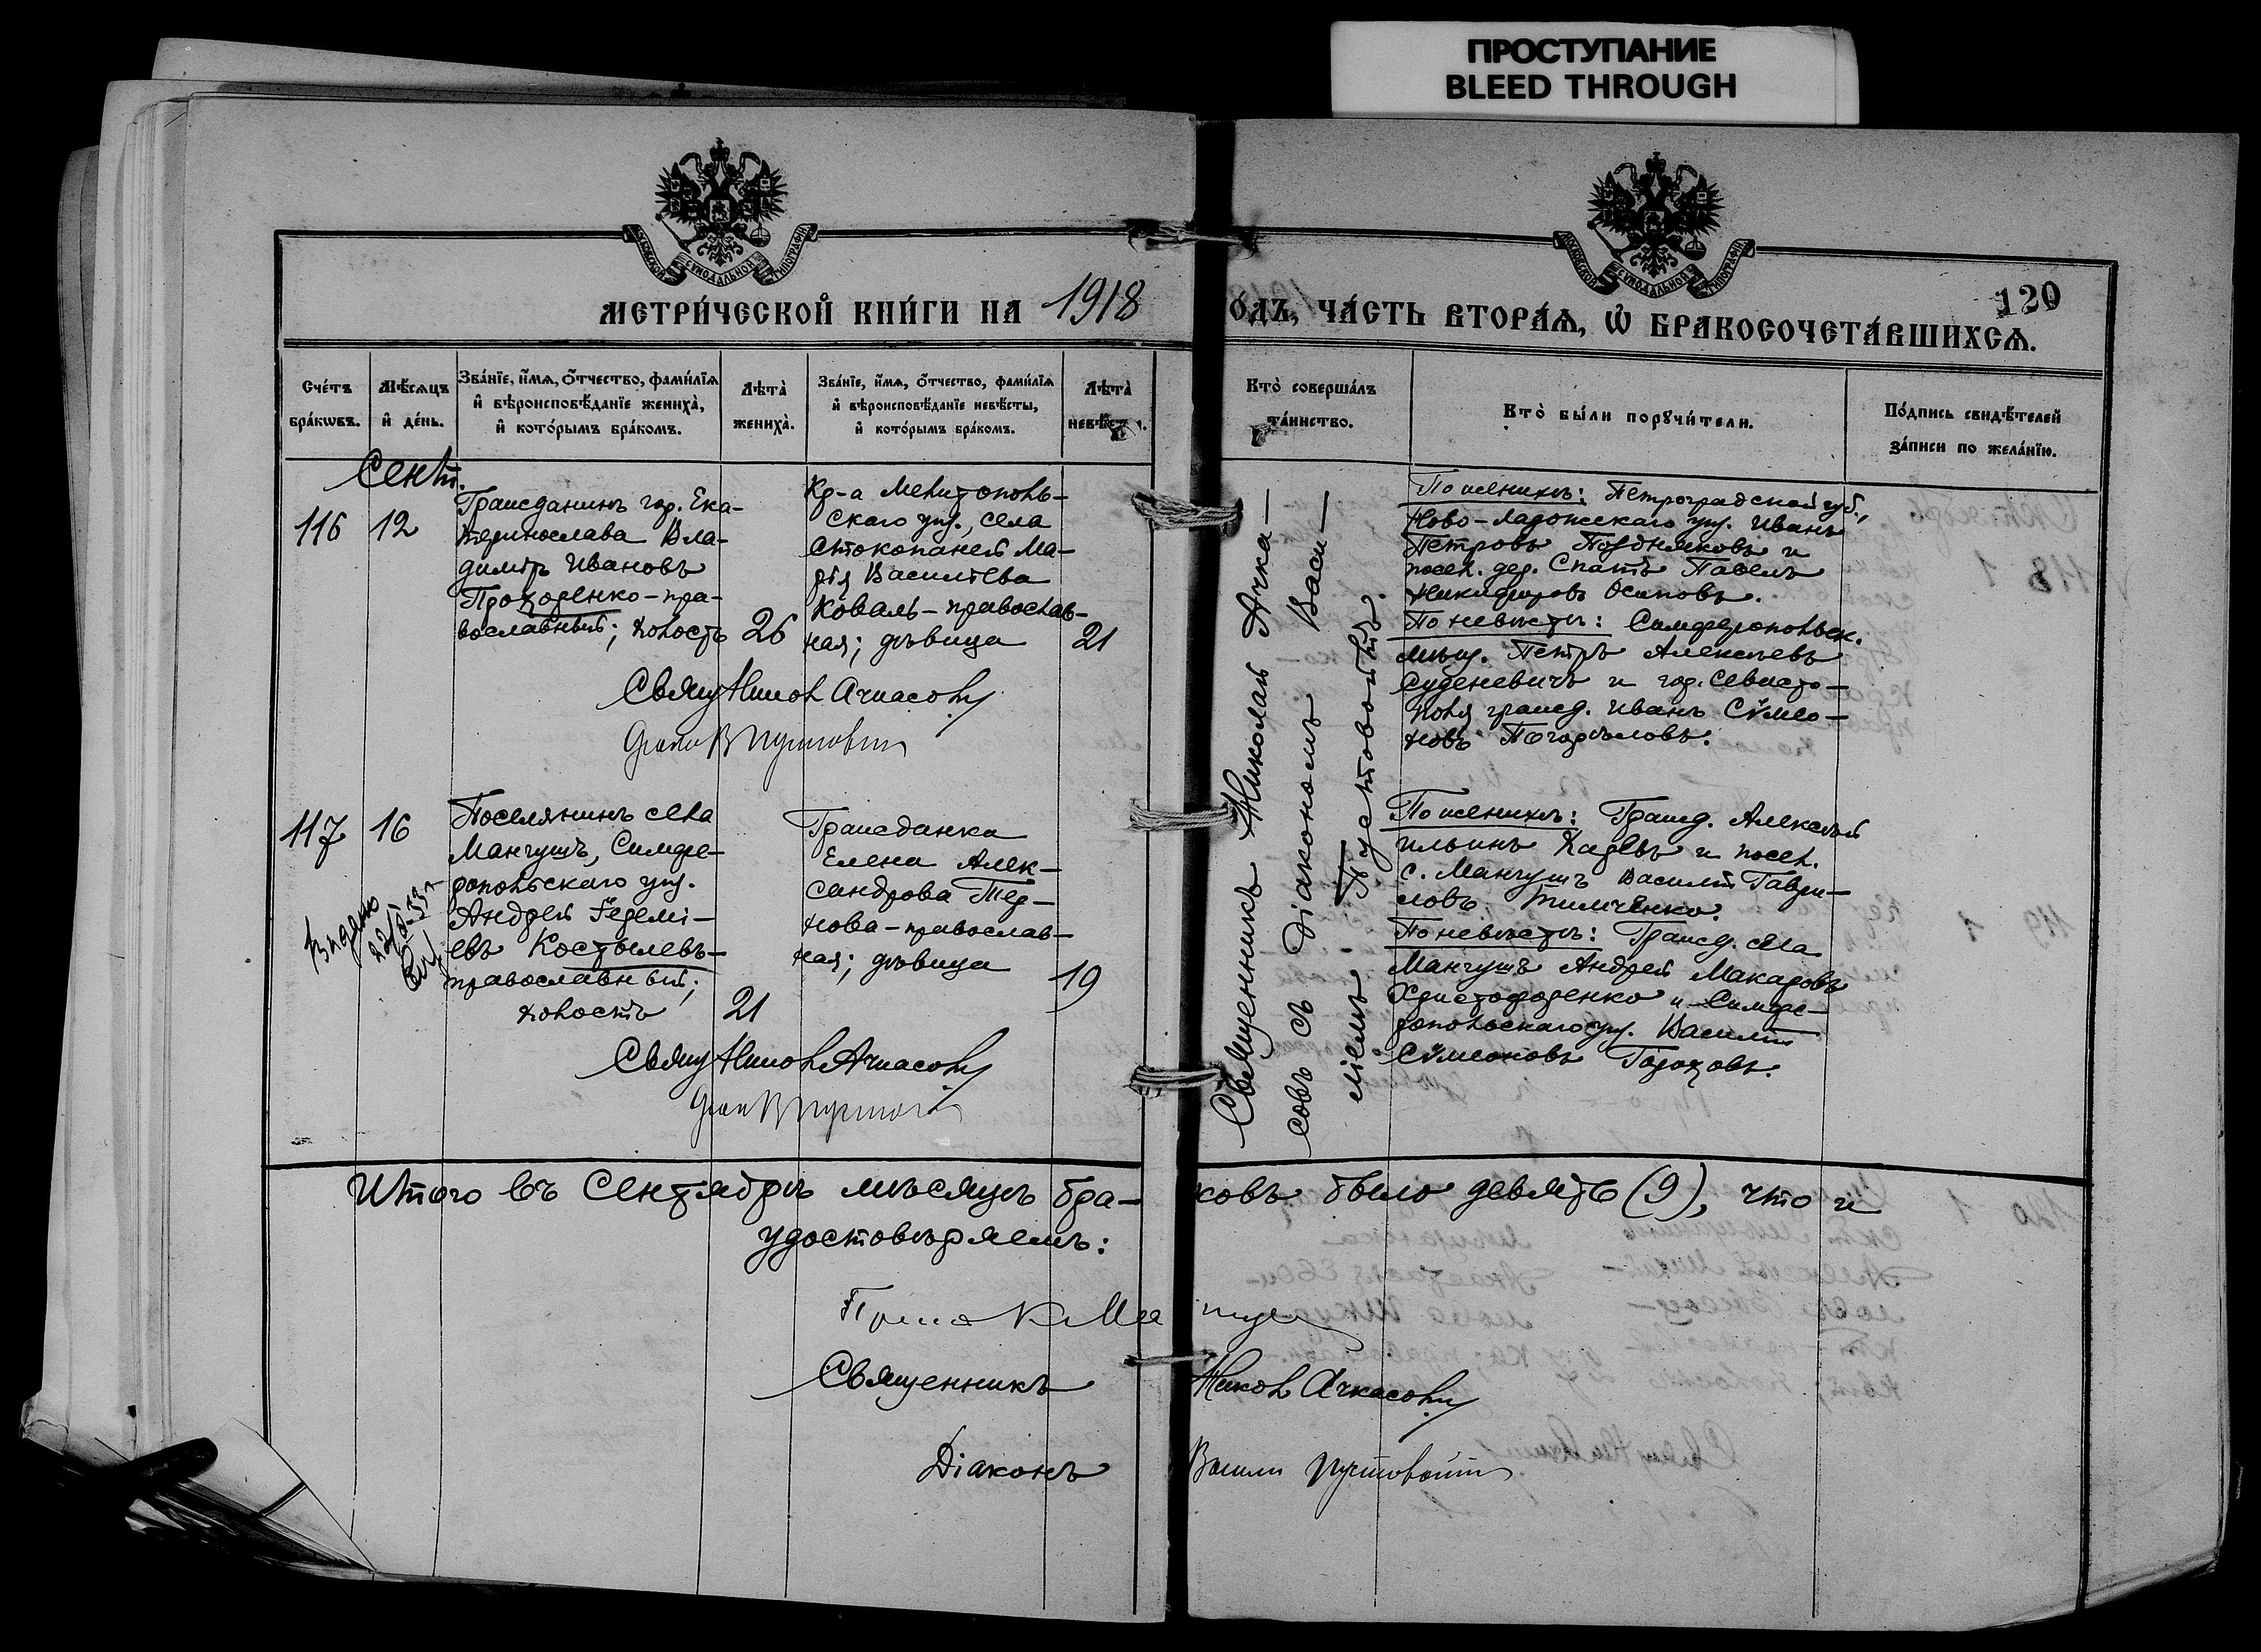 ПРОСТУПАНИЕ
BLEED THROUGH
МЕТРИ́ЧЕСКОЙ КНИ́ГИ НА 1918
О́ДЪ, ЧА́СТЬ ВТОРА́Ѧ, Ѿ БРАКОСОЧЕТА́ВШИХСѦ.
120
Сче́тъ бра́кѡвъ.
Мѣ́сѧцъ и҆ де́нь.
Зва́нїе, и҆́мѧ, о҆́тчество, фами́лїѧ
и҆ вѣроисповѣ́данїе жениха̀,
и҆ кото́рымъ бра́комъ.
Лѣта̀ жениха̀.
Зва́нїе, и҆́мѧ, о҆́тчество, фами́лїѧ
и҆ вѣроисповѣ́данїе невѣ́сты,
и҆ кото́рымъ бра́комъ.
Лѣта̀
Кто̀ соверша́лъ
та́инство.
Кто̀ бы́ли порꙋчи́тели.
По́дпись свидѣ́телей
за́писи по жела́нїю.
Сент.
116
12
Гражданинъ гор. Ека-
теринослава Вла-
диміръ Ивановъ
Прохоренко - пра-
вославный; холостъ
26
Кр-а Мелитополь-
скаго уѣз., села
Стокопаней Ма-
рія Васильева
Коваль - православ-
ная; дѣвица
21
Священникъ Николай Ачка-
совъ съ діакономъ Васи-
ліемъ Пустовойтъ.
По женихѣ: Петроградской губ.,
Ново-Ладожскаго уѣз. Иванъ
Петровъ Поздняковъ и
посел. дер. Спатъ Павелъ
Никифоровъ Осиповъ.
По невѣстѣ: Симферопольск.
мѣщ. Петръ Алексѣевъ
Суденевичъ и гор. Севасто-
поля гражд. Иванъ Сѵмео-
новъ Погорѣловъ.
Свящ Никол Ачкасовъ
117
16
Поселянинъ села
Мангушъ, Симфе-
ропольскаго уѣз.
Андрей Іеремі-
евъ Костылевъ-
православный;
холостъ
21
Гражданка
Елена Алек-
сандрова Тер-
нова - православ-
ная; дѣвица
19
По женихѣ: Гражд. Алексѣй
Ильинъ и посел.
с. Мангушъ Василій Гаври-
ловъ Тимченко.
По невѣстѣ: Гражд. села
Мангушъ Андрей Макаровъ
Христофоренко и Симфе-
ропольскаго уѣз. Василій
Сѵмеоновъ Гороховъ.
Свящ Никол Ачкасовъ
Итого въ Сентябрѣ мѣсяцѣ бра-ковъ было девять (9), что и
удостовѣряемъ:
Священникъ Никол Ачкасовъ
Діаконъ Васили Пустовойтъ